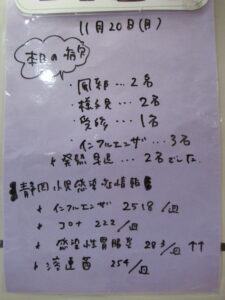 11月20日(月)
本日の病欠
・風邪…2名
・様子見…2名
・受診…1名
・インフルエンザ…3名
*発熱早退…2名でした。
静岡県感染症情報
* インフルエンザ 2518/週
* コロナ 222/週
* 感染性胃腸炎 283/週 ↑↑
* 溶連菌 254/週